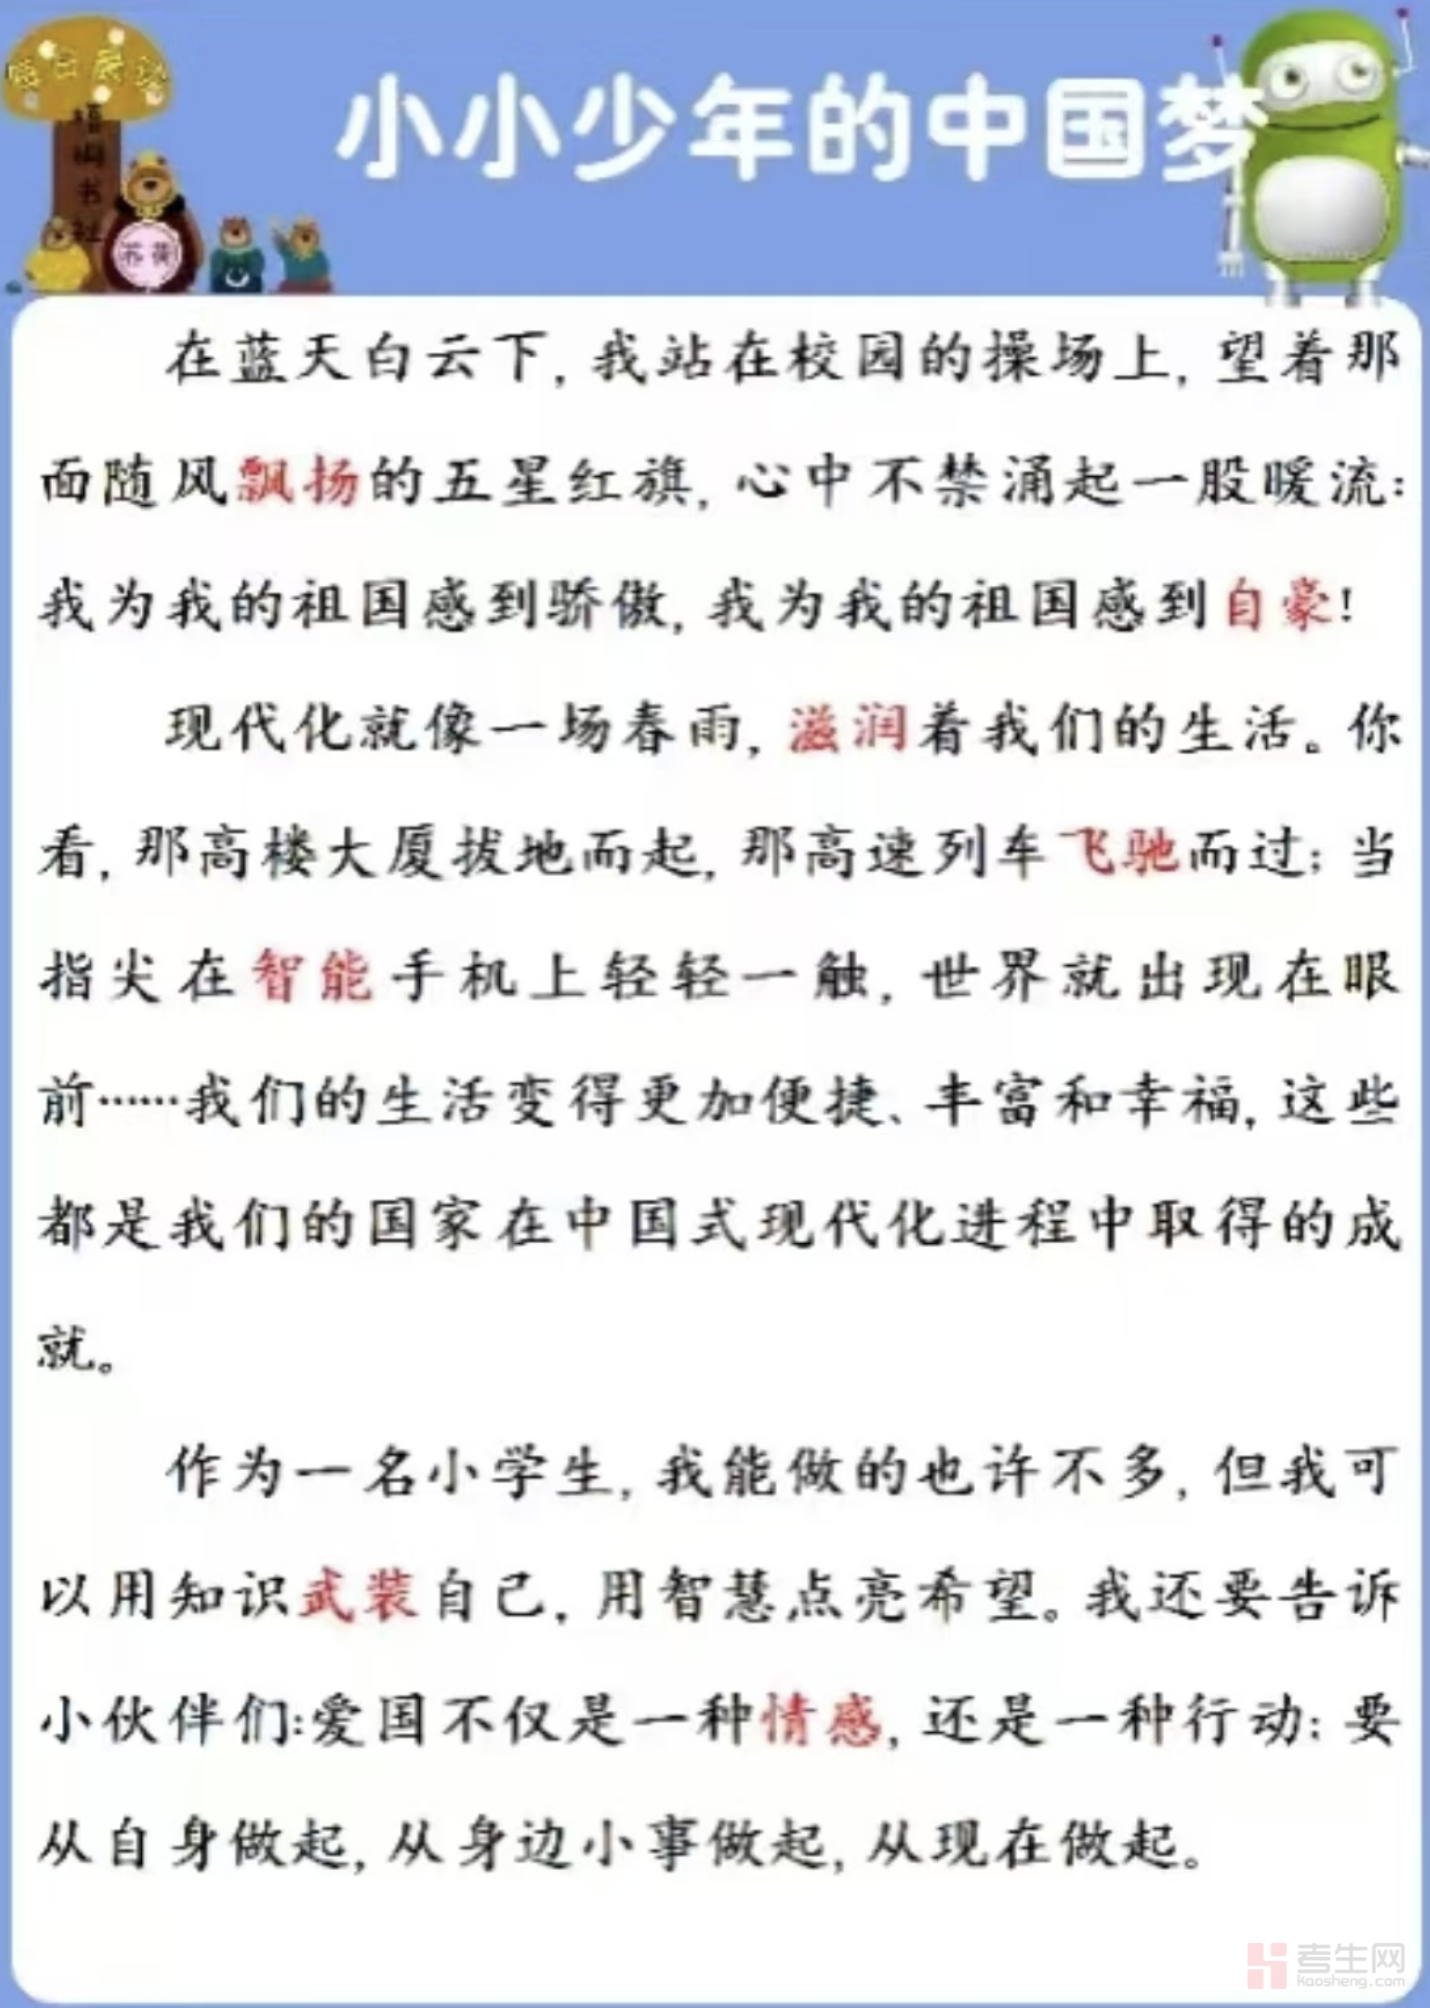 小小少年的中国梦
书
在蓝天白云下,我站在校园的操场上,望着那
面随风飘扬的五星红旗,心中不禁涌起一股暖流:
我为我的祖国感到骄傲,我为我的祖国感到自豪!
现代化就像一场春雨,滋润着我们的生活。你
看,那高楼大厦拔地而起,那高速列车飞驰而过;当
指尖在智能手机上轻轻一触,世界就出现在眼
前……我们的生活变得更加便捷、丰富和幸福,这些
都是我们的国家在中国式现代化进程中取得的成
就。
作为一名小学生,我能做的也许不多,但我可
以用知识武装自己,用智慧点亮希望。我还要告诉
小伙伴们:爱国不仅是一种情感,还是一种行动;要
从自身做起,从身边小事做起,从现在做起。
考生网
kaosheng.com